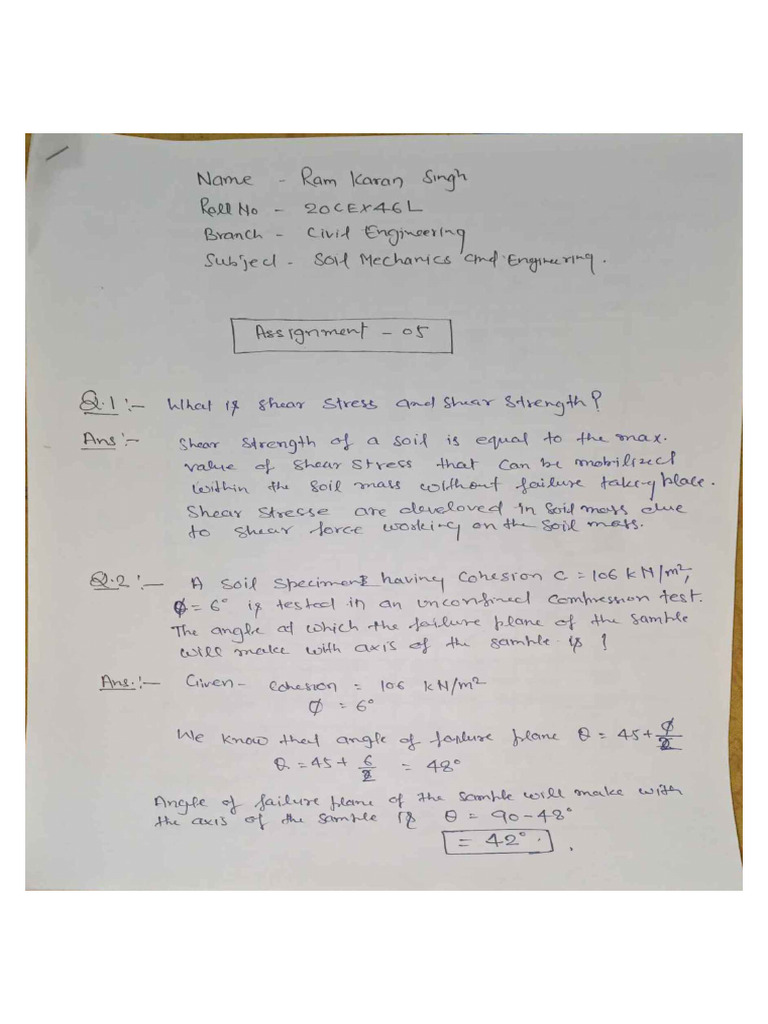 Name - Ram Karan Singh
Roll No - 20CEX46L
Branch - Civil Engineering
Subject - Soil Mechanics and Engineering.
Assignment - 05
Q.1 :- What is shear stress and shear strength?
Ans :- Shear strength of a soil is equal to the max.
value of shear stress that can be mobilized
within the soil mass without failure taking place.
Shear stresse are develoved in soil mass due
to shear force working on the soil mass.
Q.2 :- A soil specimen having cohesion c = 106 kN/m²,
φ = 6° is tested in an unconfined compression test.
The angle at which the failure plane of the sample
will make with axis of the sample is ?
Ans. :- Given - Cohesion = 106 kN/m²
φ = 6°
We know that angle of failure plane θ = 45 + φ/2
θ = 45 + 6/2 = 48°
Angle of failure plane of the sample will make with
the axis of the sample is θ = 90 - 48°
= 42°.